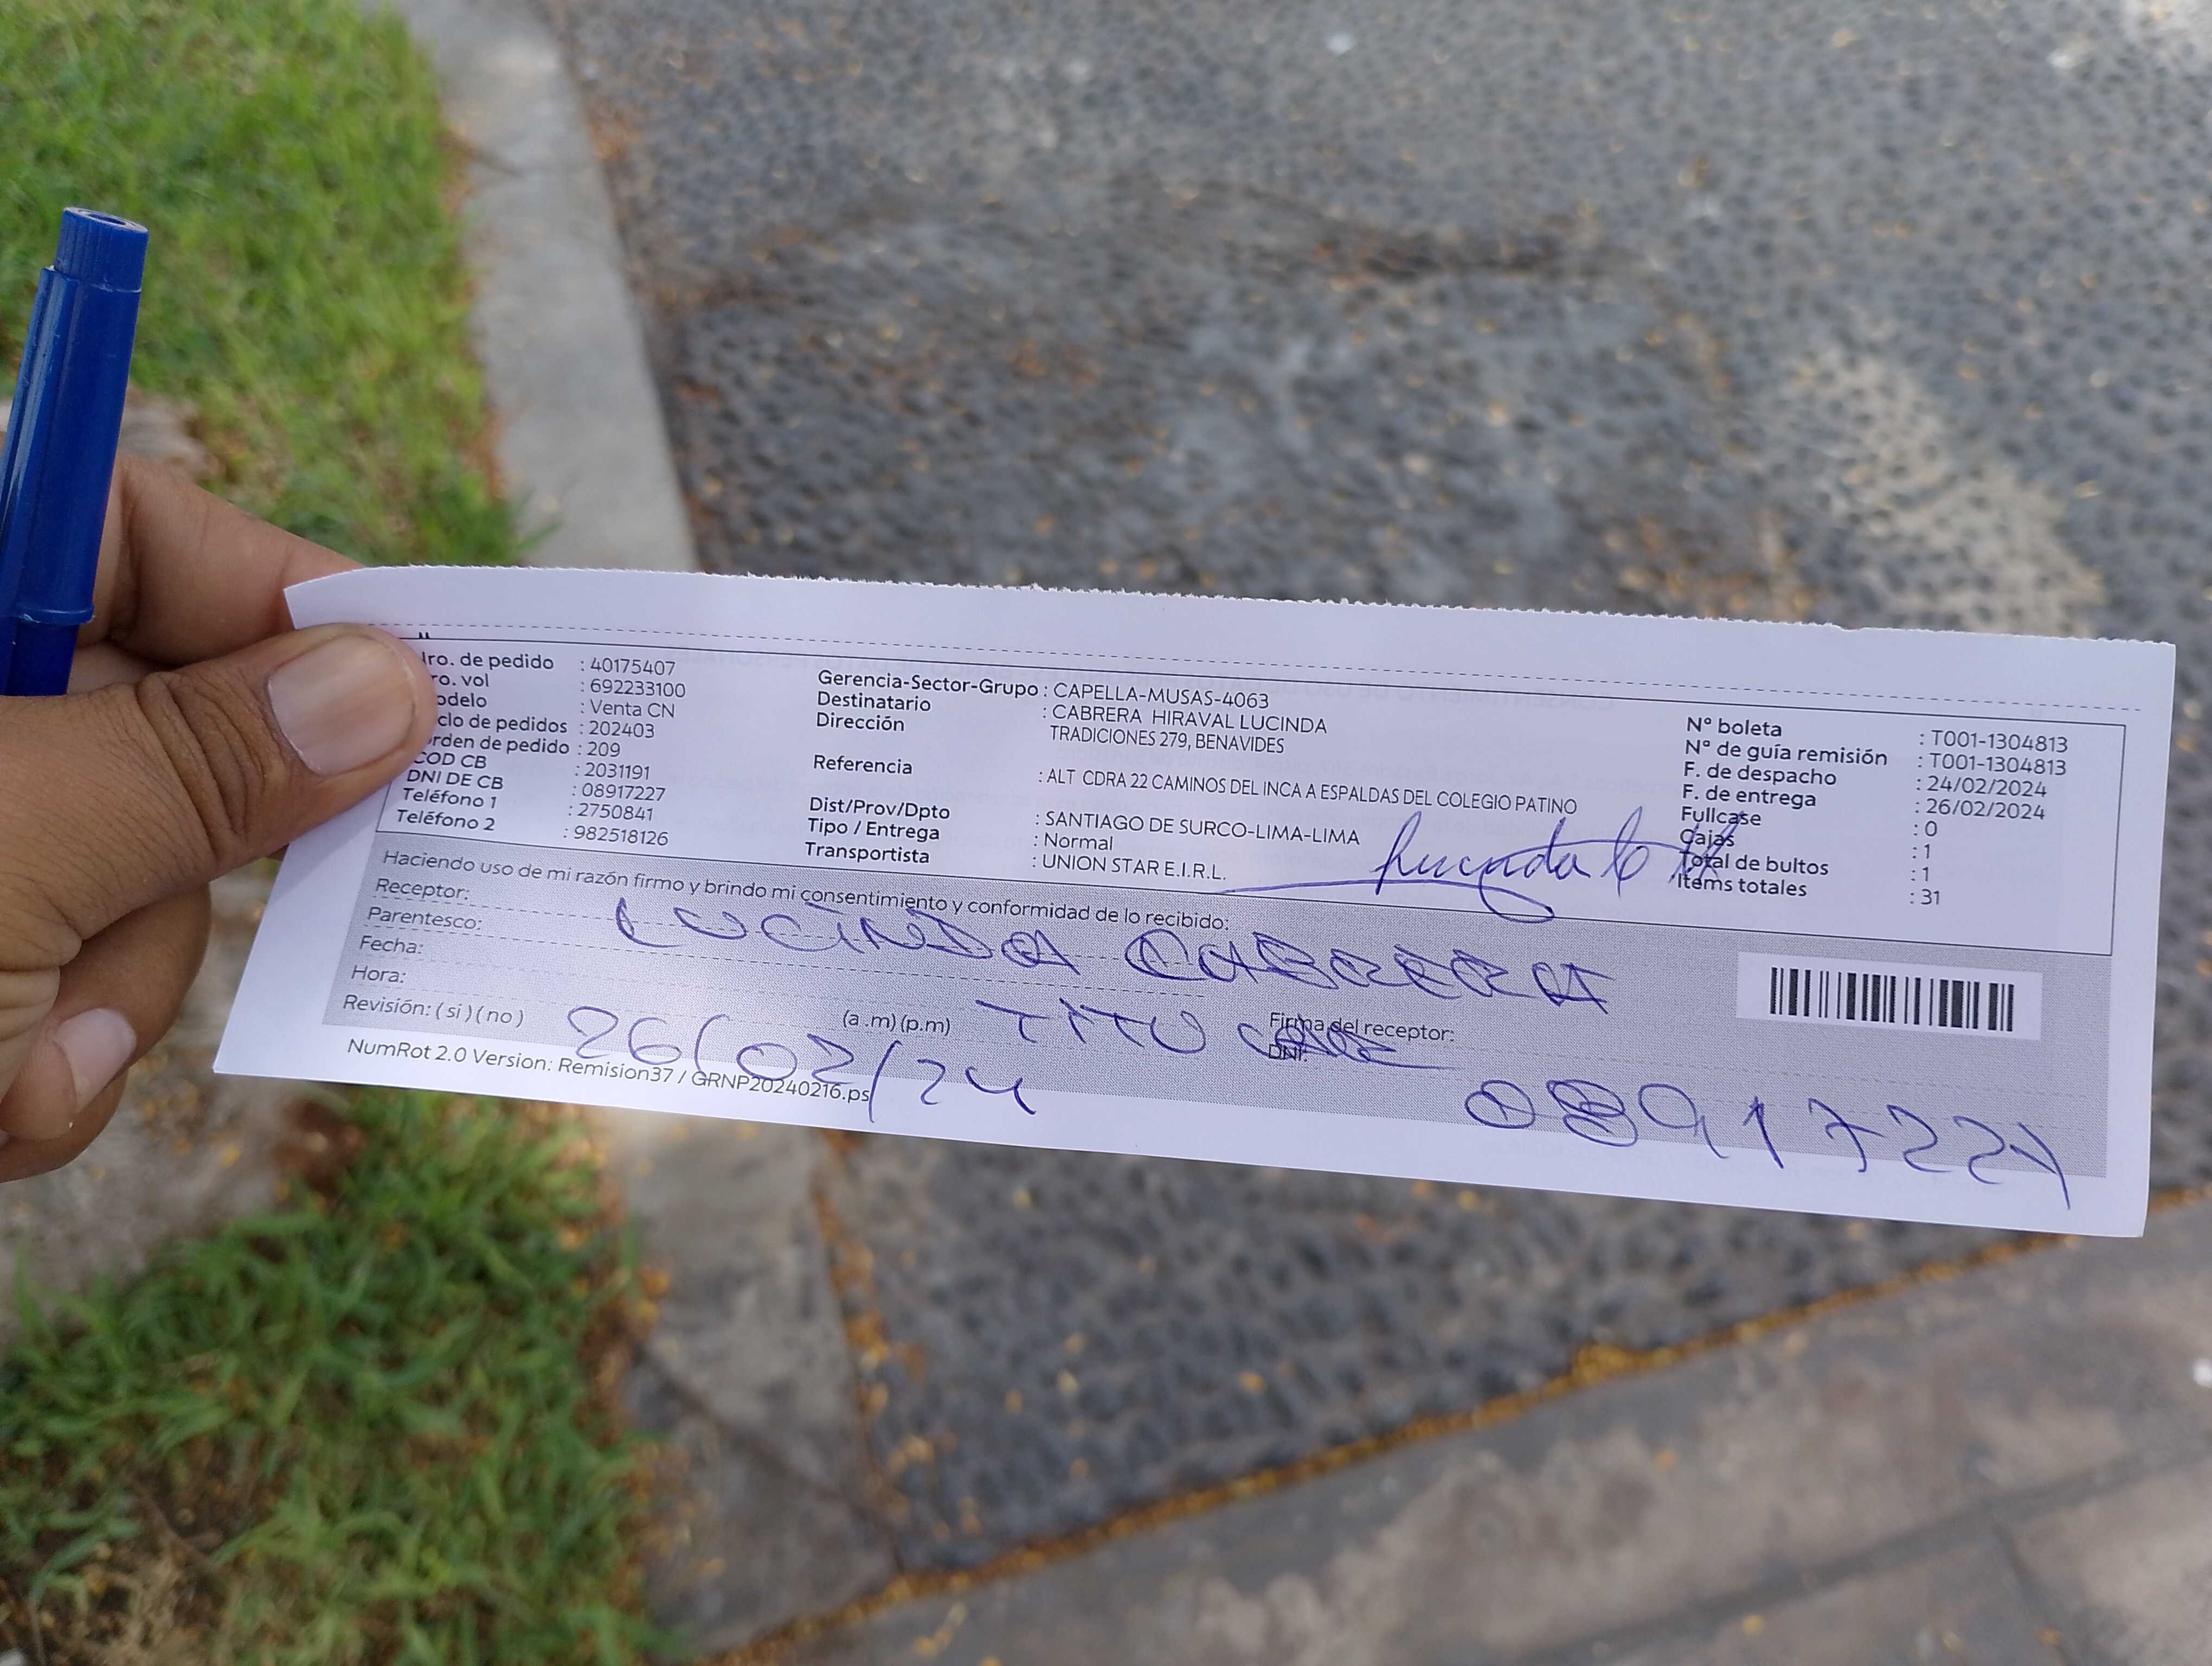 Nro. de pedido : 40175407
ro. vol : 692233100
odelo : Venta CN
clo de pedidos : 202403
rden de pedido : 209
COD CB : 2031191
DNI DE CB : 08917227
Teléfono 1 : 2750841
Teléfono 2 : 982518126
Gerencia-Sector-Grupo : CAPELLA-MUSAS-4063
Destinatario : CABRERA HIRAVAL LUCINDA
Dirección TRADICIONES 279, BENAVIDES
Referencia : ALT CDRA 22 CAMINOS DEL INCA A ESPALDAS DEL COLEGIO PATINO
Dist/Prov/Dpto : SANTIAGO DE SURCO-LIMA-LIMA
Tipo / Entrega : Normal
Transportista : UNION STAR E.I.R.L.
N° boleta : T001-1304813
N° de guía remisión : T001-1304813
F. de despacho : 24/02/2024
F. de entrega : 26/02/2024
Fullcase : 0
Cajas : 1
Total de bultos : 1
Items totales : 31
Lucinda C H
Haciendo uso de mi razón firmo y brindo mi consentimiento y conformidad de lo recibido:
Receptor: LUCINDA CABRERA
Parentesco: TITU
Fecha: 26/02/24
Hora: (a.m) (p.m)
Revisión: ( si ) ( no )
Firma del receptor:
DNI: 08917227
NumRot 2.0 Version: Remision37 / GRNP20240216.ps